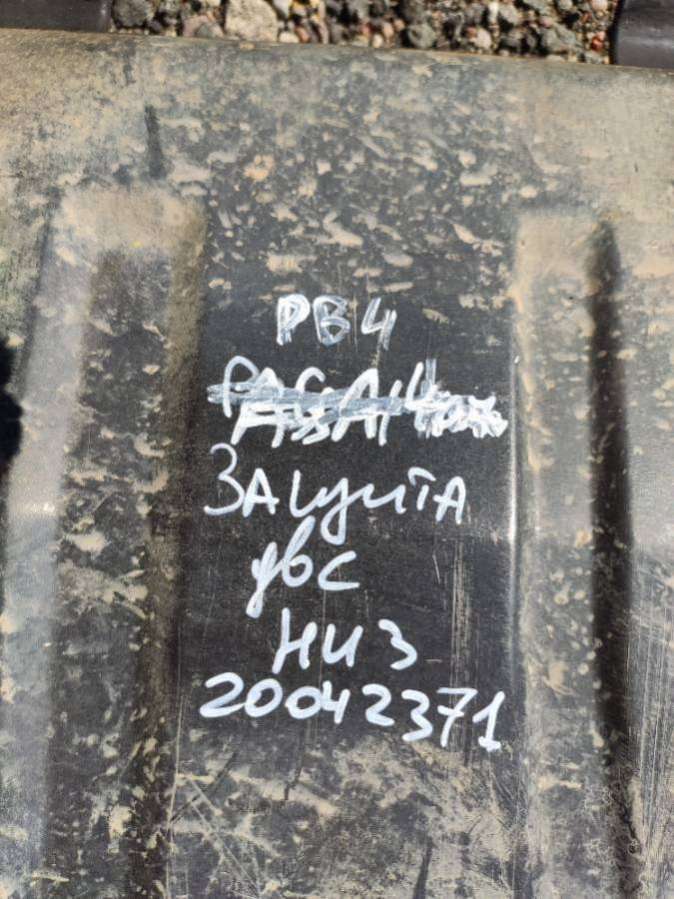 РВ4
Защита
двс
низ
20042371